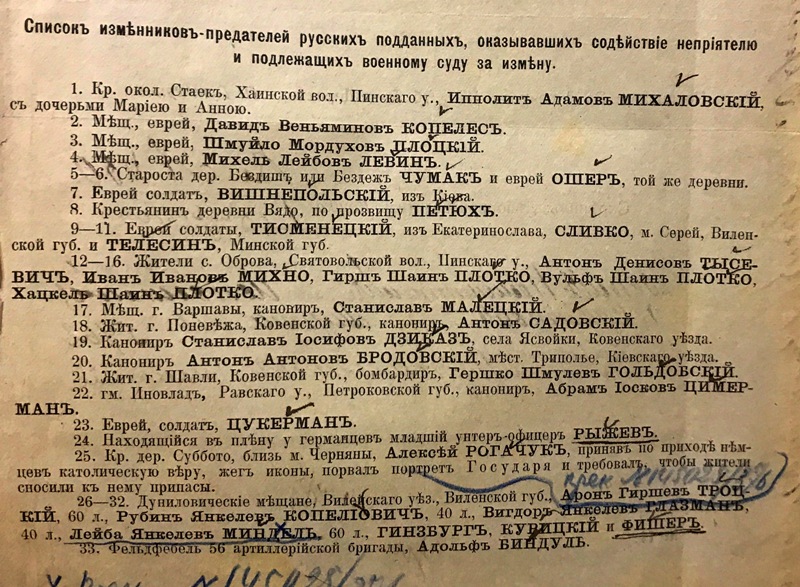 Списокъ измѣнниковъ-предателей русскихъ подданныхъ, оказывавшихъ содѣйствіе непріятелю
и подлежащихъ военному суду за измѣну.
1. Кр. окол. Стаек, Хаинской вол., Пинскаго у., Ипполитъ Адамовъ МИХАЛОВСКІЙ,
съ дочерьми Маріею и Анною.
2. Мѣщ., еврей, Давидъ Веньяминовъ КОПЕЛЕСЪ.
3. Мѣщ., еврей, Шмуйло Мордуховъ ПЛОЦКІЙ.
4. Мѣщ., еврей, Михель Лейбовъ ЛЕВИНЪ.
5—6. Староста дер. Бездишъ или Бездежъ ЧУМАКЪ и еврей ОШЕРЪ, той же деревни.
7. Еврей солдатъ, ВИШНЕПОЛЬСКІЙ, изъ Кіева.
8. Крестьянинъ деревни Вядо, по прозвищу ПЕТЮХЪ.
9—11. Еврей солдаты, ТИСМЕНЕЦКІЙ, изъ Екатеринослава, СЛИВКО, м. Серей, Вилен-
ской губ. и ТЕЛЕСИНЪ, Минской губ.
12—16. Жители с. Оброва, Святовольской вол., Пинскаго у., Антонъ Денисовъ ТЫСЕ-
ВИЧЪ, Иванъ Ивановъ МИХНО, Гиршъ Шаинъ ПЛОТКО, Вульфъ Шаинъ ПЛОТКО,
Хацкель Шаинъ ПЛОТКО.
17. Мѣщ. г. Варшавы, канониръ, Станиславъ МАЛЕЦКІЙ.
18. Жит. г. Поневѣжа, Ковенской губ., канониръ, Антонъ САДОВСКІЙ.
19. Канониръ Станиславъ Іосифовъ ДЗИКАЗЪ, села Ясвойки, Ковенскаго уѣзда.
20. Канониръ Антонъ Антоновъ БРОДОВСКІЙ, мѣст. Триполье, Кіевскаго уѣзда.
21. Жит. г. Шавли, Ковенской губ., бомбардиръ, Гершко Шмулевъ ГОЛЬДОВСКІЙ.
22. гм. Иновладъ, Равскаго у., Петроковской губ., канониръ, Абрамъ Іосковъ ЦИМЕР-
МАНЪ.
23. Еврей, солдатъ, ЦУКЕРМАНЪ.
24. Находящійся въ плѣну у германцевъ младшій унтеръ-офицеръ РЫЖЕВЪ.
25. Кр. дер. Суббото, близь м. Черняны, Алексѣй РОГАЧУКЪ, принявъ по приходѣ нѣм-
цевъ католическую вѣру, жегъ иконы, порвалъ портретъ Государя и требовалъ, чтобы жители
сносили къ нему припасы.
26—32. Дуниловическіе мѣщане, Вилейскаго уѣз., Виленской губ., Афонъ Гиршевъ ТРОЦ-
КІЙ, 60 л., Рубинъ Янкелевъ КОПЕЛІОВИЧЪ, 40 л., Вигдоръ Янкелевъ ГЛАЗМАНЪ,
40 л., Лейба Янкелевъ МИНДЕЛЬ, 60 л., ГИНЗБУРГЪ, КУВИЦКІЙ и ФИШЕРЪ.
33. Фельдфебель 56 артиллерійской бригады, Адольфъ БИНДУЛЬ.